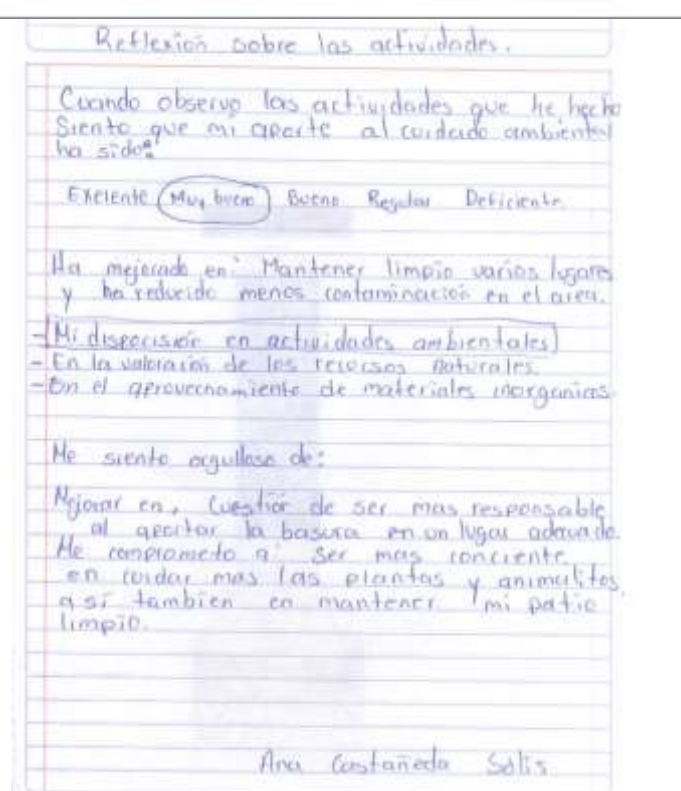 Reflexión sobre las actividades.
Cuando observo las actividades que he hecho
Siento que mi aporte al cuidado ambiental
ha sido:
Exelente Muy bueno Bueno Regular Deficiente
Ha mejorado en: Mantener limpio varios lugares
y ha reducido menos contaminación en el area.
- Mi disposición en actividades ambientales
- En la valoración de los recursos naturales.
- En el aprovechamiento de materiales inorganicos
Me siento orgullosa de:
Mejorar en, Cuestión de ser mas responsable
al aportar la basura en un lugar adecuado.
Me comprometo a: Ser mas conciente
en cuidar mas las plantas y animalitos,
asi tambien en mantener mi patio
limpio.
Ana Castañeda Solis